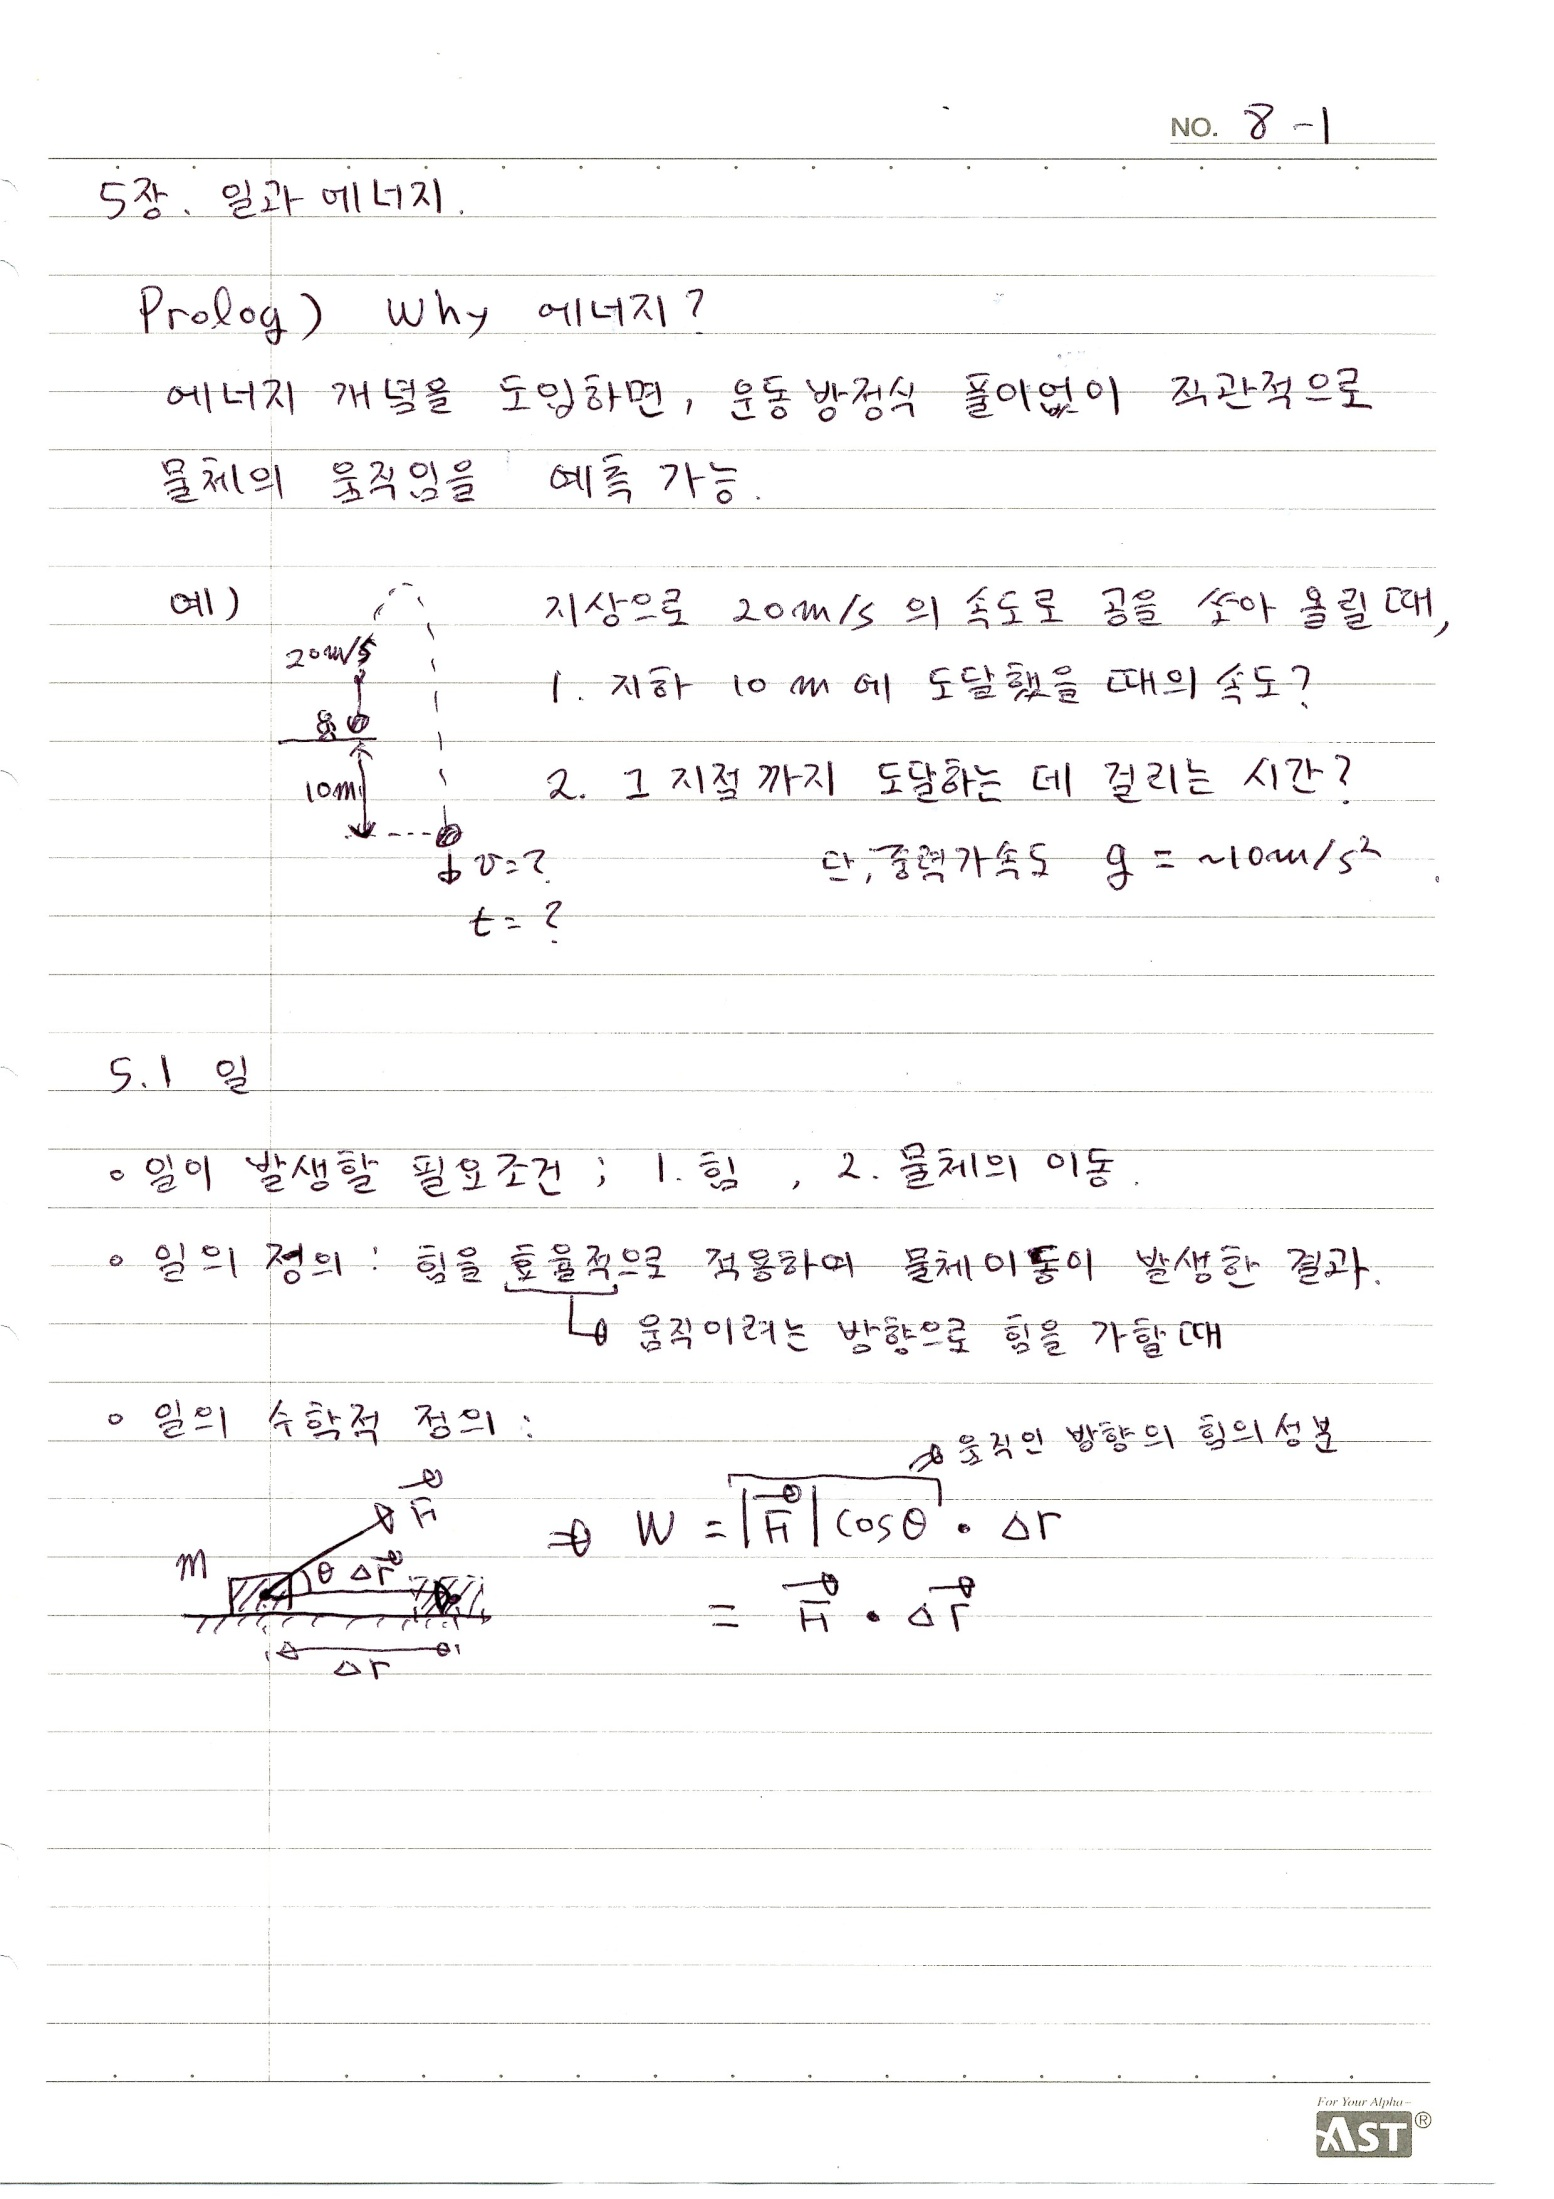 NO. 8-1
5장. 일과 에너지.
Prolog) Why 에너지?
에너지 개념을 도입하면, 운동방정식 풀이없이 직관적으로
물체의 움직임을 예측 가능.
예)
20m/s
10m
v=?
t=?
지상으로 20m/s 의 속도로 공을 쏘아 올릴 때,
1. 지하 10m에 도달했을 때의 속도?
2. 그 지점까지 도달하는 데 걸리는 시간?
단, 중력가속도 g = ~10m/s²
5.1 일
◦ 일이 발생할 필요조건 ; 1. 힘 , 2. 물체의 이동.
◦ 일의 정의 : 힘을 효율적으로 적용하여 물체이동이 발생한 결과.
↳ 움직이려는 방향으로 힘을 가할 때
◦ 일의 수학적 정의 :
→ 움직인 방향의 힘의 성분
m F⃗ θ Δr⃗
Δr
⇒ W = |F⃗| cosθ • Δr
= F⃗ • Δr⃗
For Your Alpha~
AST®